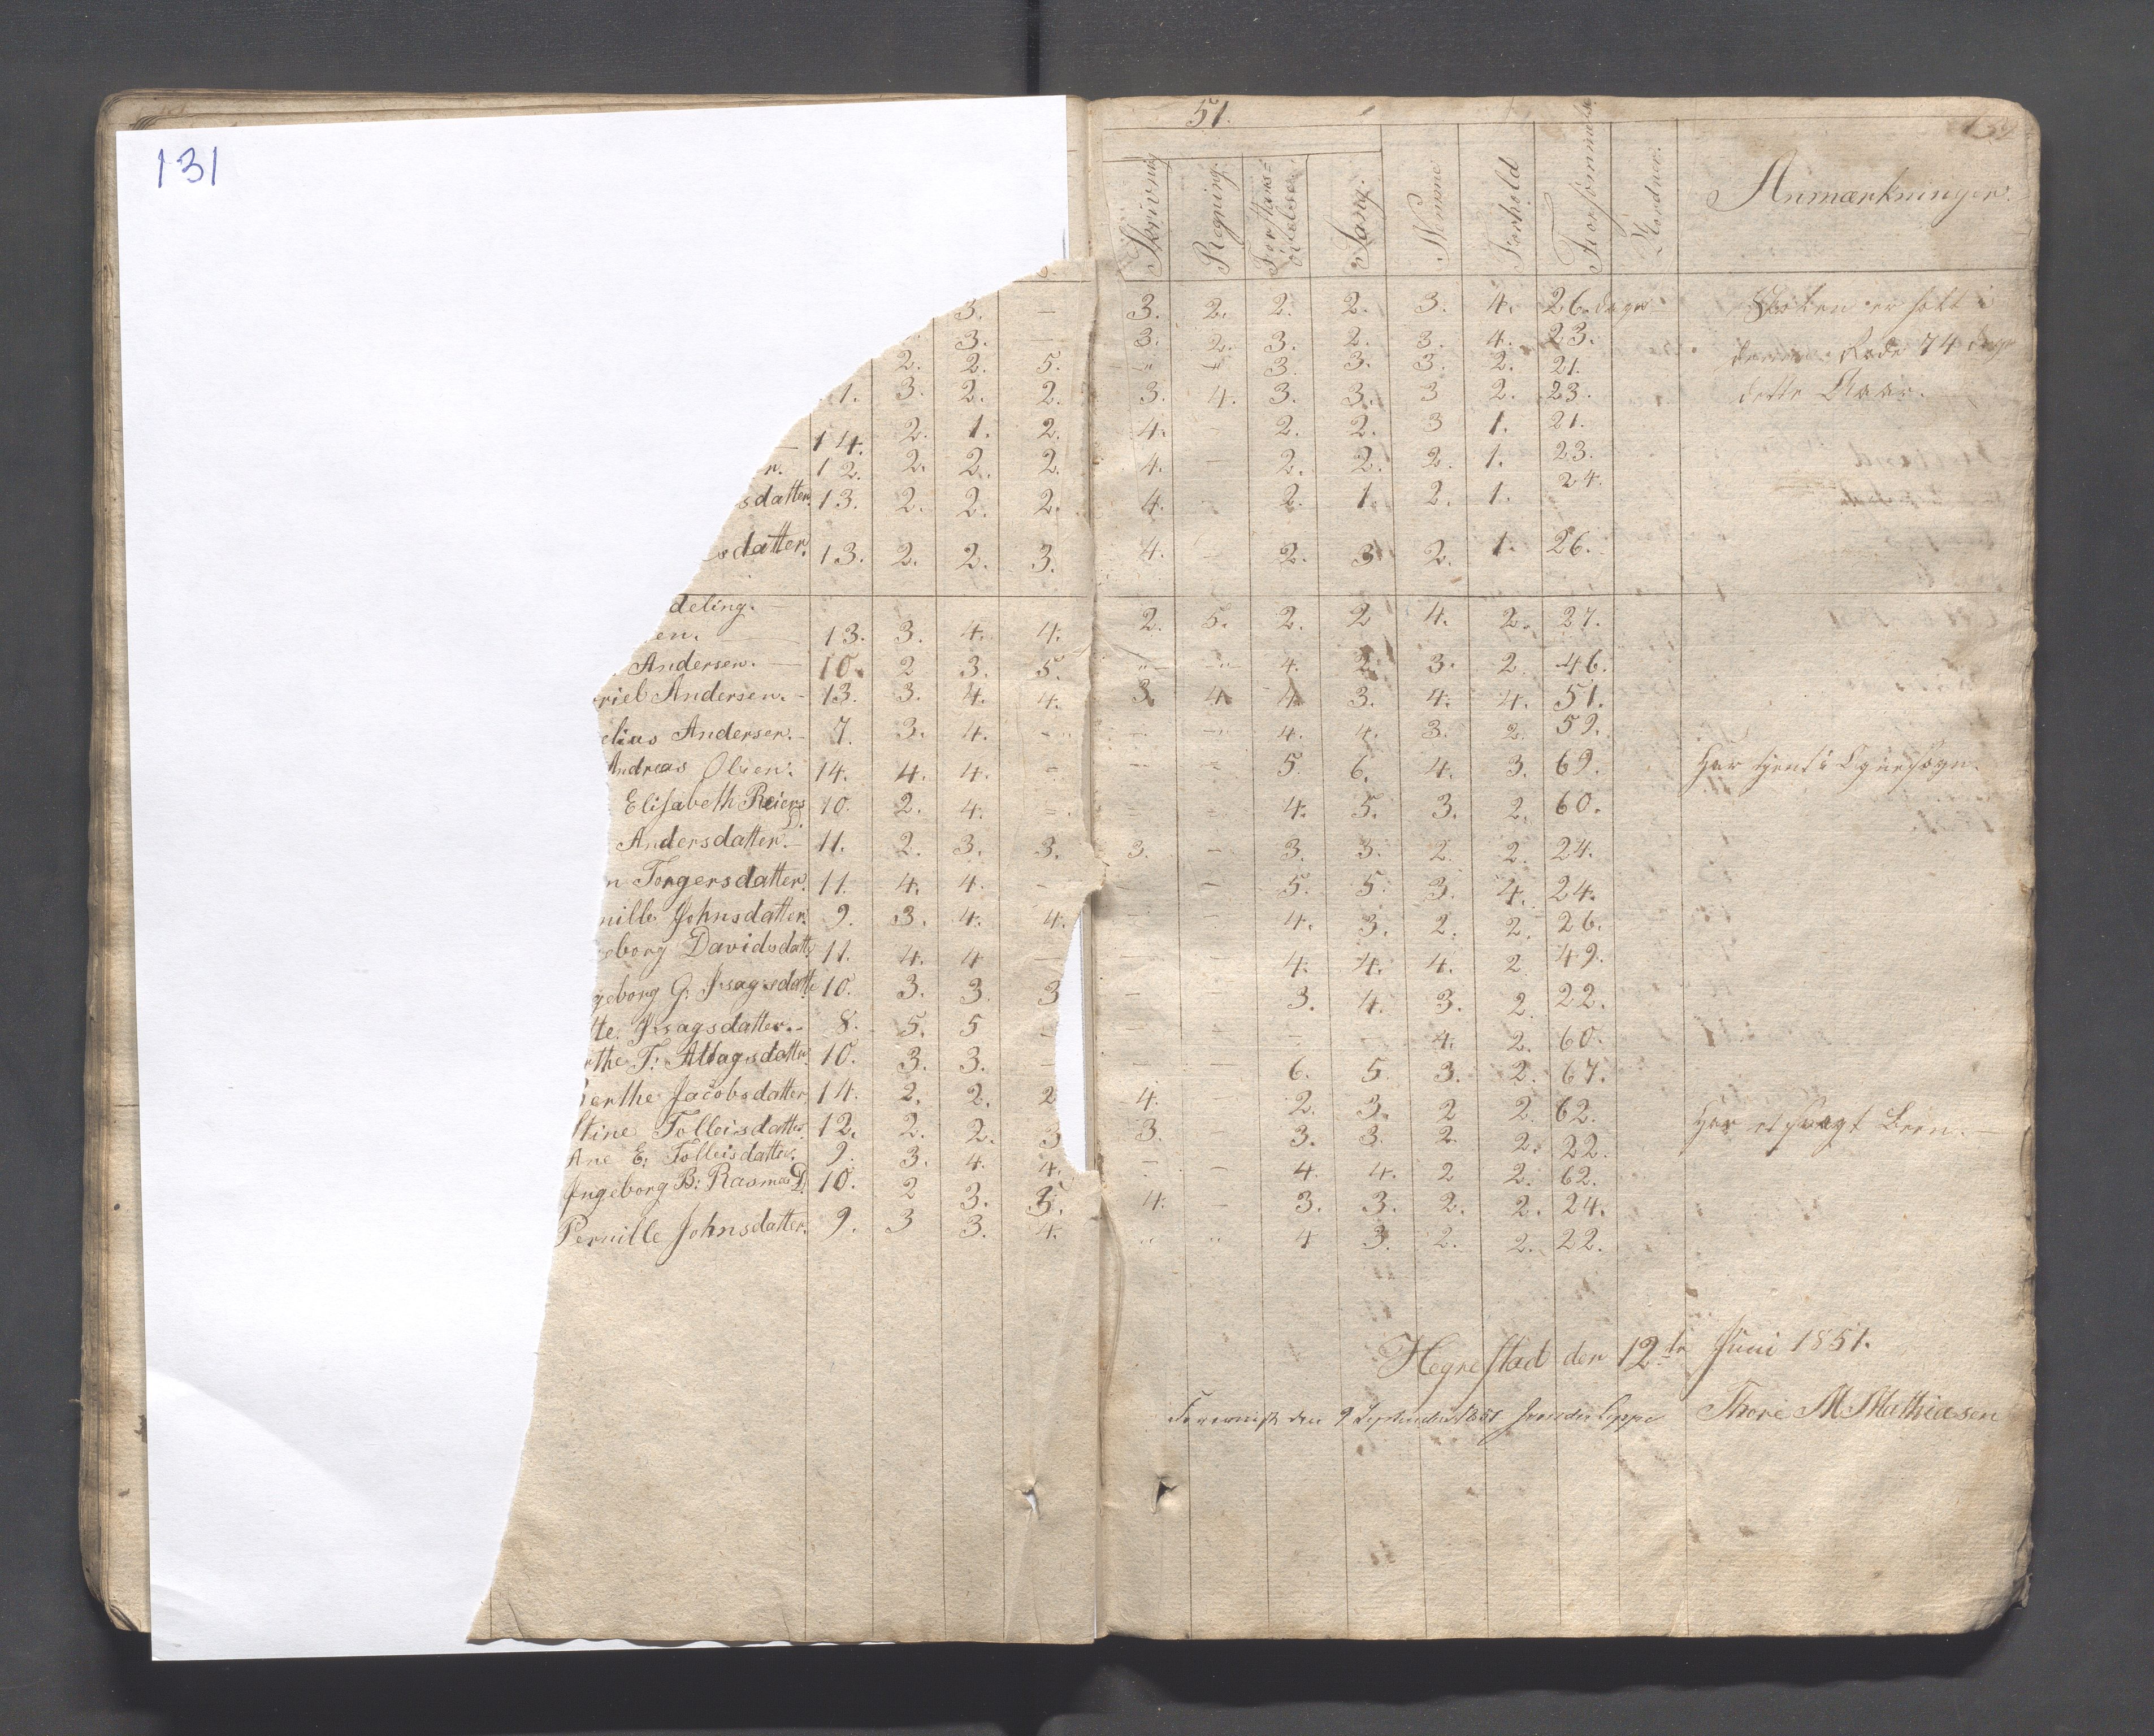 131
51.
132
Skrivning Regning. Forstands= Øvelse Sang. Nemme Forhold Forsømmelse Anmærkninger.
3. — 3. 2. 2. 2. 3. 4. 26. dage Skolen er holdt i
3. — 3. 2. 3. 2. 3. 4. 23. denne Rode 74 dage
2. 2. 5. — " — " 3. 3. 3. 2. 21.
1. 3. 2. 2. 3. 4. 3. 3. 3 2. 23. dette Aar.
14. 2. 1. 2. 4. — 2. 2. 3 1. 21.
r. 12. 2. 2. 2. 4. — 2. 2. 2. 1. 23.
sdatter. 13. 2. 2. 2. 4. — 2. 1. 2. 1. 24.
sdatter. 13. 2. 2. 3. 4. — 2. 3 2. 1. 26.
deling. —
en. — 13. 3. 4. 4. 2. 5. 2. 2 4. 2. 27.
Andersen. — 10. 2 3. 5. " — " — 4. 2. 3. 2 46.
riel Andersen. - 13. 3. 4. 4. 3. 4 4 3. 4. 4. 51.
elias Andersen. - 7. 3. 4. - " — — " 4. 4. 3. 2 59.
Andreas Olsen. 14. 4. 4. = — — 5. 6. 4. 3. 69. Har tjent i Egnesogn.
Elisabeth Reiers D. 10. 2. 4. = — = 4. 5. 3. 2. 60.
Andersdatter. - 11. 2. 3. 3. 3. — 3. 3. 2. 2. 24.
n Torgersdatter. 11. 4. 4. — — — 5. 5. 3. 4. 24.
nille Johnsdatter. 9. 3. 4. 4. — — 4. 3. 2. 2. 26.
eborg Davidsdatt. 11. 4. 4 — — — 4. 4. 4. 2 49.
geborg G. Isagsdatt. 10. 3. 3. 3 — — 3. 4. 3. 2. 22.
te. Isagsdatter. - 8. 5. 5 — — — 4. 2. 60.
rthe T: Aslagsdatter 10. 3. 3. — — — 6. 5. 3. 2. 67.
Berthe Jacobsdatter 14. 2. 2. 2 4. — 2. 3. 2 2. 62. Har et svagt Been. —
Stine Tolleisdatter. 12. 2. 2. 3 3. — 3. 3. 2. 2. 22.
Ane E: Tolleisdatter. 9. 3. 4. 4. — — 4. 4. 2 2. 62.
Ingeborg B: Rasmus D. 10. 2 3. 3. 4. — 3. 3. 2. 2. 24.
Pernille Johnsdatter. 9. 3 3. 4. " " 4 3. 2. 2. 22.
Hegrestad den 12te Juni 1851.
Foreviist den 9 September 1851 Thore M Mathiasen